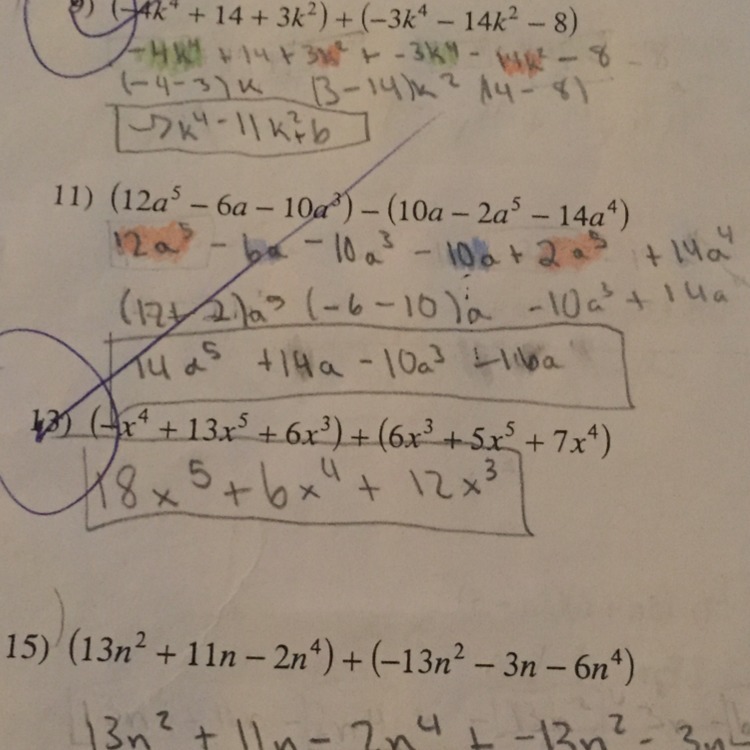 9) (-4k⁴ + 14 + 3k²) + (-3k⁴ - 14k² - 8)
-4k⁴ + 14 + 3k² + -3k⁴ - 14k² - 8
(-4-3)k (3-14)k² (14-8)
-7k⁴ - 11k² + 6
11) (12a⁵ - 6a - 10a³) - (10a - 2a⁵ - 14a⁴)
12a⁵ - 6a - 10a³ - 10a + 2a⁵ + 14a⁴
(12+2)a⁵ (-6-10)a -10a³ + 14a
14a⁵ + 14a - 10a³ - 16a
13) (-x⁴ + 13x⁵ + 6x³) + (6x³ + 5x⁵ + 7x⁴)
18x⁵ + 6x⁴ + 12x³
15) (13n² + 11n - 2n⁴) + (-13n² - 3n - 6n⁴)
13n² + 11n - 2n⁴ + -13n² - 3n